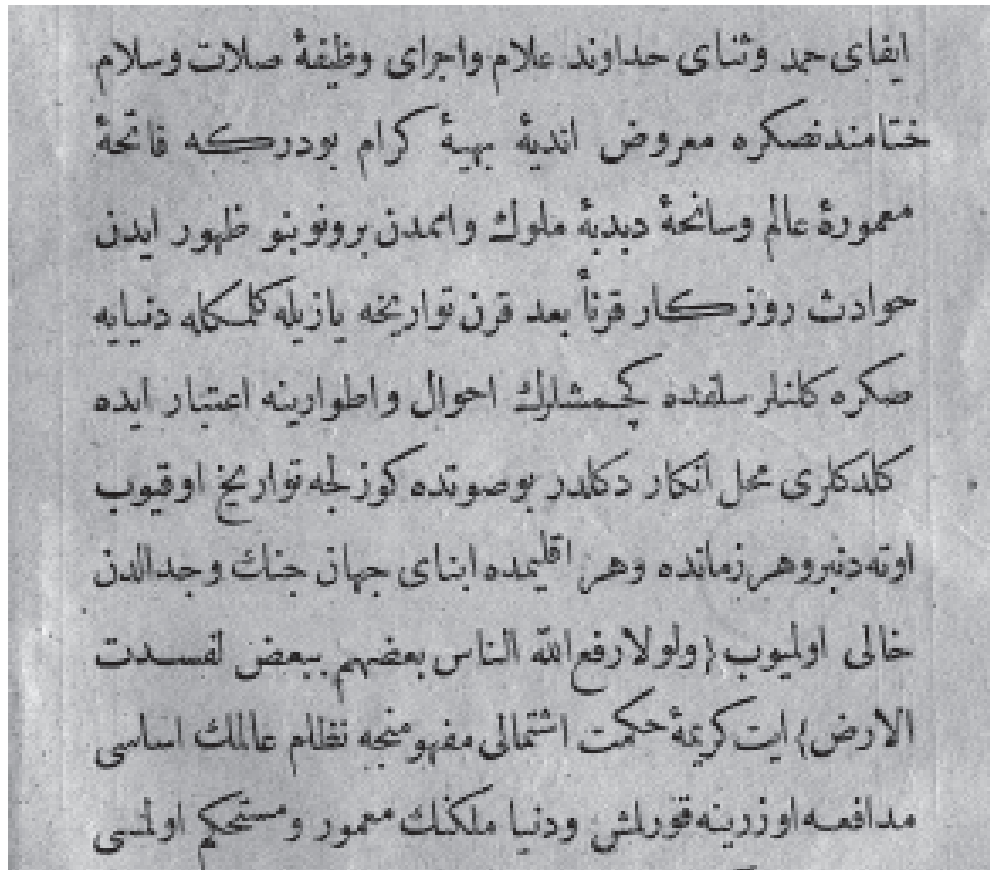 ایفای حمد وثنای خداوند علام واجرای وظیفهٔ صلات وسلام
ختامندنصکره معروض اندیهٔ بهیهٔ کرام بودرکه فاتحهٔ
معمورهٔ عالم وسانحهٔ دبدبهٔ ملوك وامدن بروبوبنو ظهور ایدن
حوادث روزکار قرناً بعد قرن تواریخه یازیله کلمکله دنیایه
صکره کلنلر سلفده کچمشلرك احوال واطوارینه اعتبار ایده
کلدکلری محل انکار دکلدر بوصوتده کوزلجه تواریخ اوقیوب
اوته دنبرو هر زمانده وهر اقلیمده ابنای جهان جنك وجدالدن
خالی اولمیوب {ولولا رفع الله الناس بعضهم ببعض لفسدت
الارض} ایت کریمهٔ حکمت اشتمالی مفهومنجه نظام عالمك اساسی
مدافعه اوزرینه قورلمش ودنیا ملکنك معمور ومستحکم اولمسی